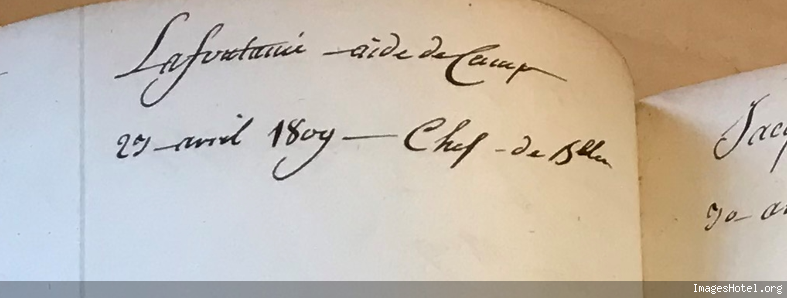 Lafontaine aide de Camp
27 avril 1809 — Chef de Bllon
Jacq
30 a
ImagesHotel.org